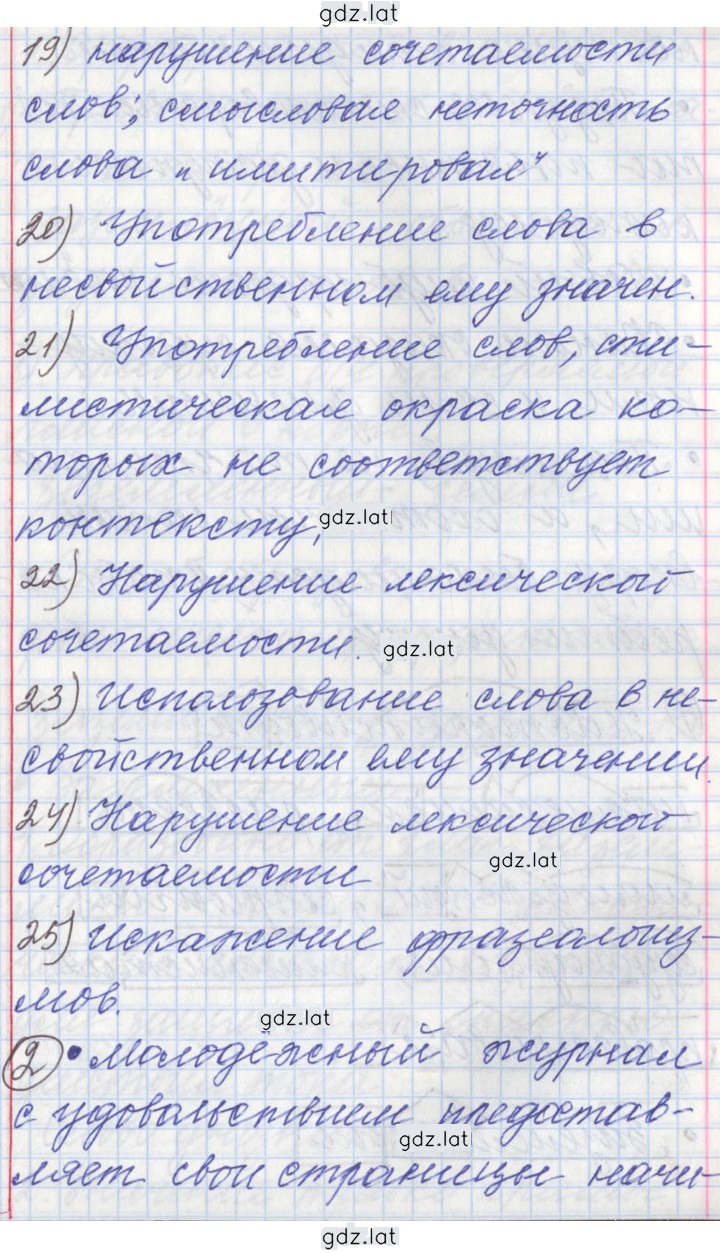 gdz.lat
19) нарушение сочетаемости
слов; смысловая неточность
слова "имитировал"
20) Употребление слова в
несвойственном ему значен.
21) Употребление слов, сти-
листическая окраска ко-
торых не соответствует
контексту, gdz.lat
22) Нарушение лексической
сочетаемости. gdz.lat
23) Использование слова в не-
свойственном ему значении.
24) Нарушение лексической
сочетаемости gdz.lat
25) Искажение фразеалогиз-
мов. gdz.lat
2 • Молодёжный журнал
с удовольствием предостав-
gdz.lat
ляет свои страницы начи-
gdz.lat